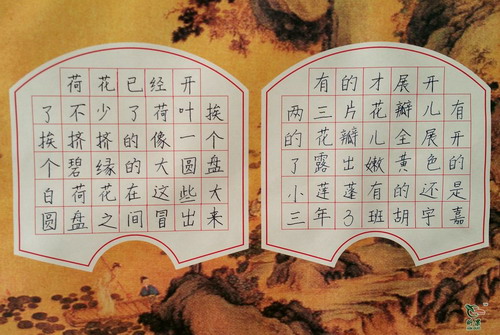 荷花已经开
了不少了荷叶挨
挨挤挤的像一个
个碧缘的大圆盘
白荷花在这些大
圆盘之间冒出来
有的才展开
两三片花瓣儿有
的花瓣儿全展开
了露出嫩黄色的
小莲蓬有的还是
三年3班胡宇嘉